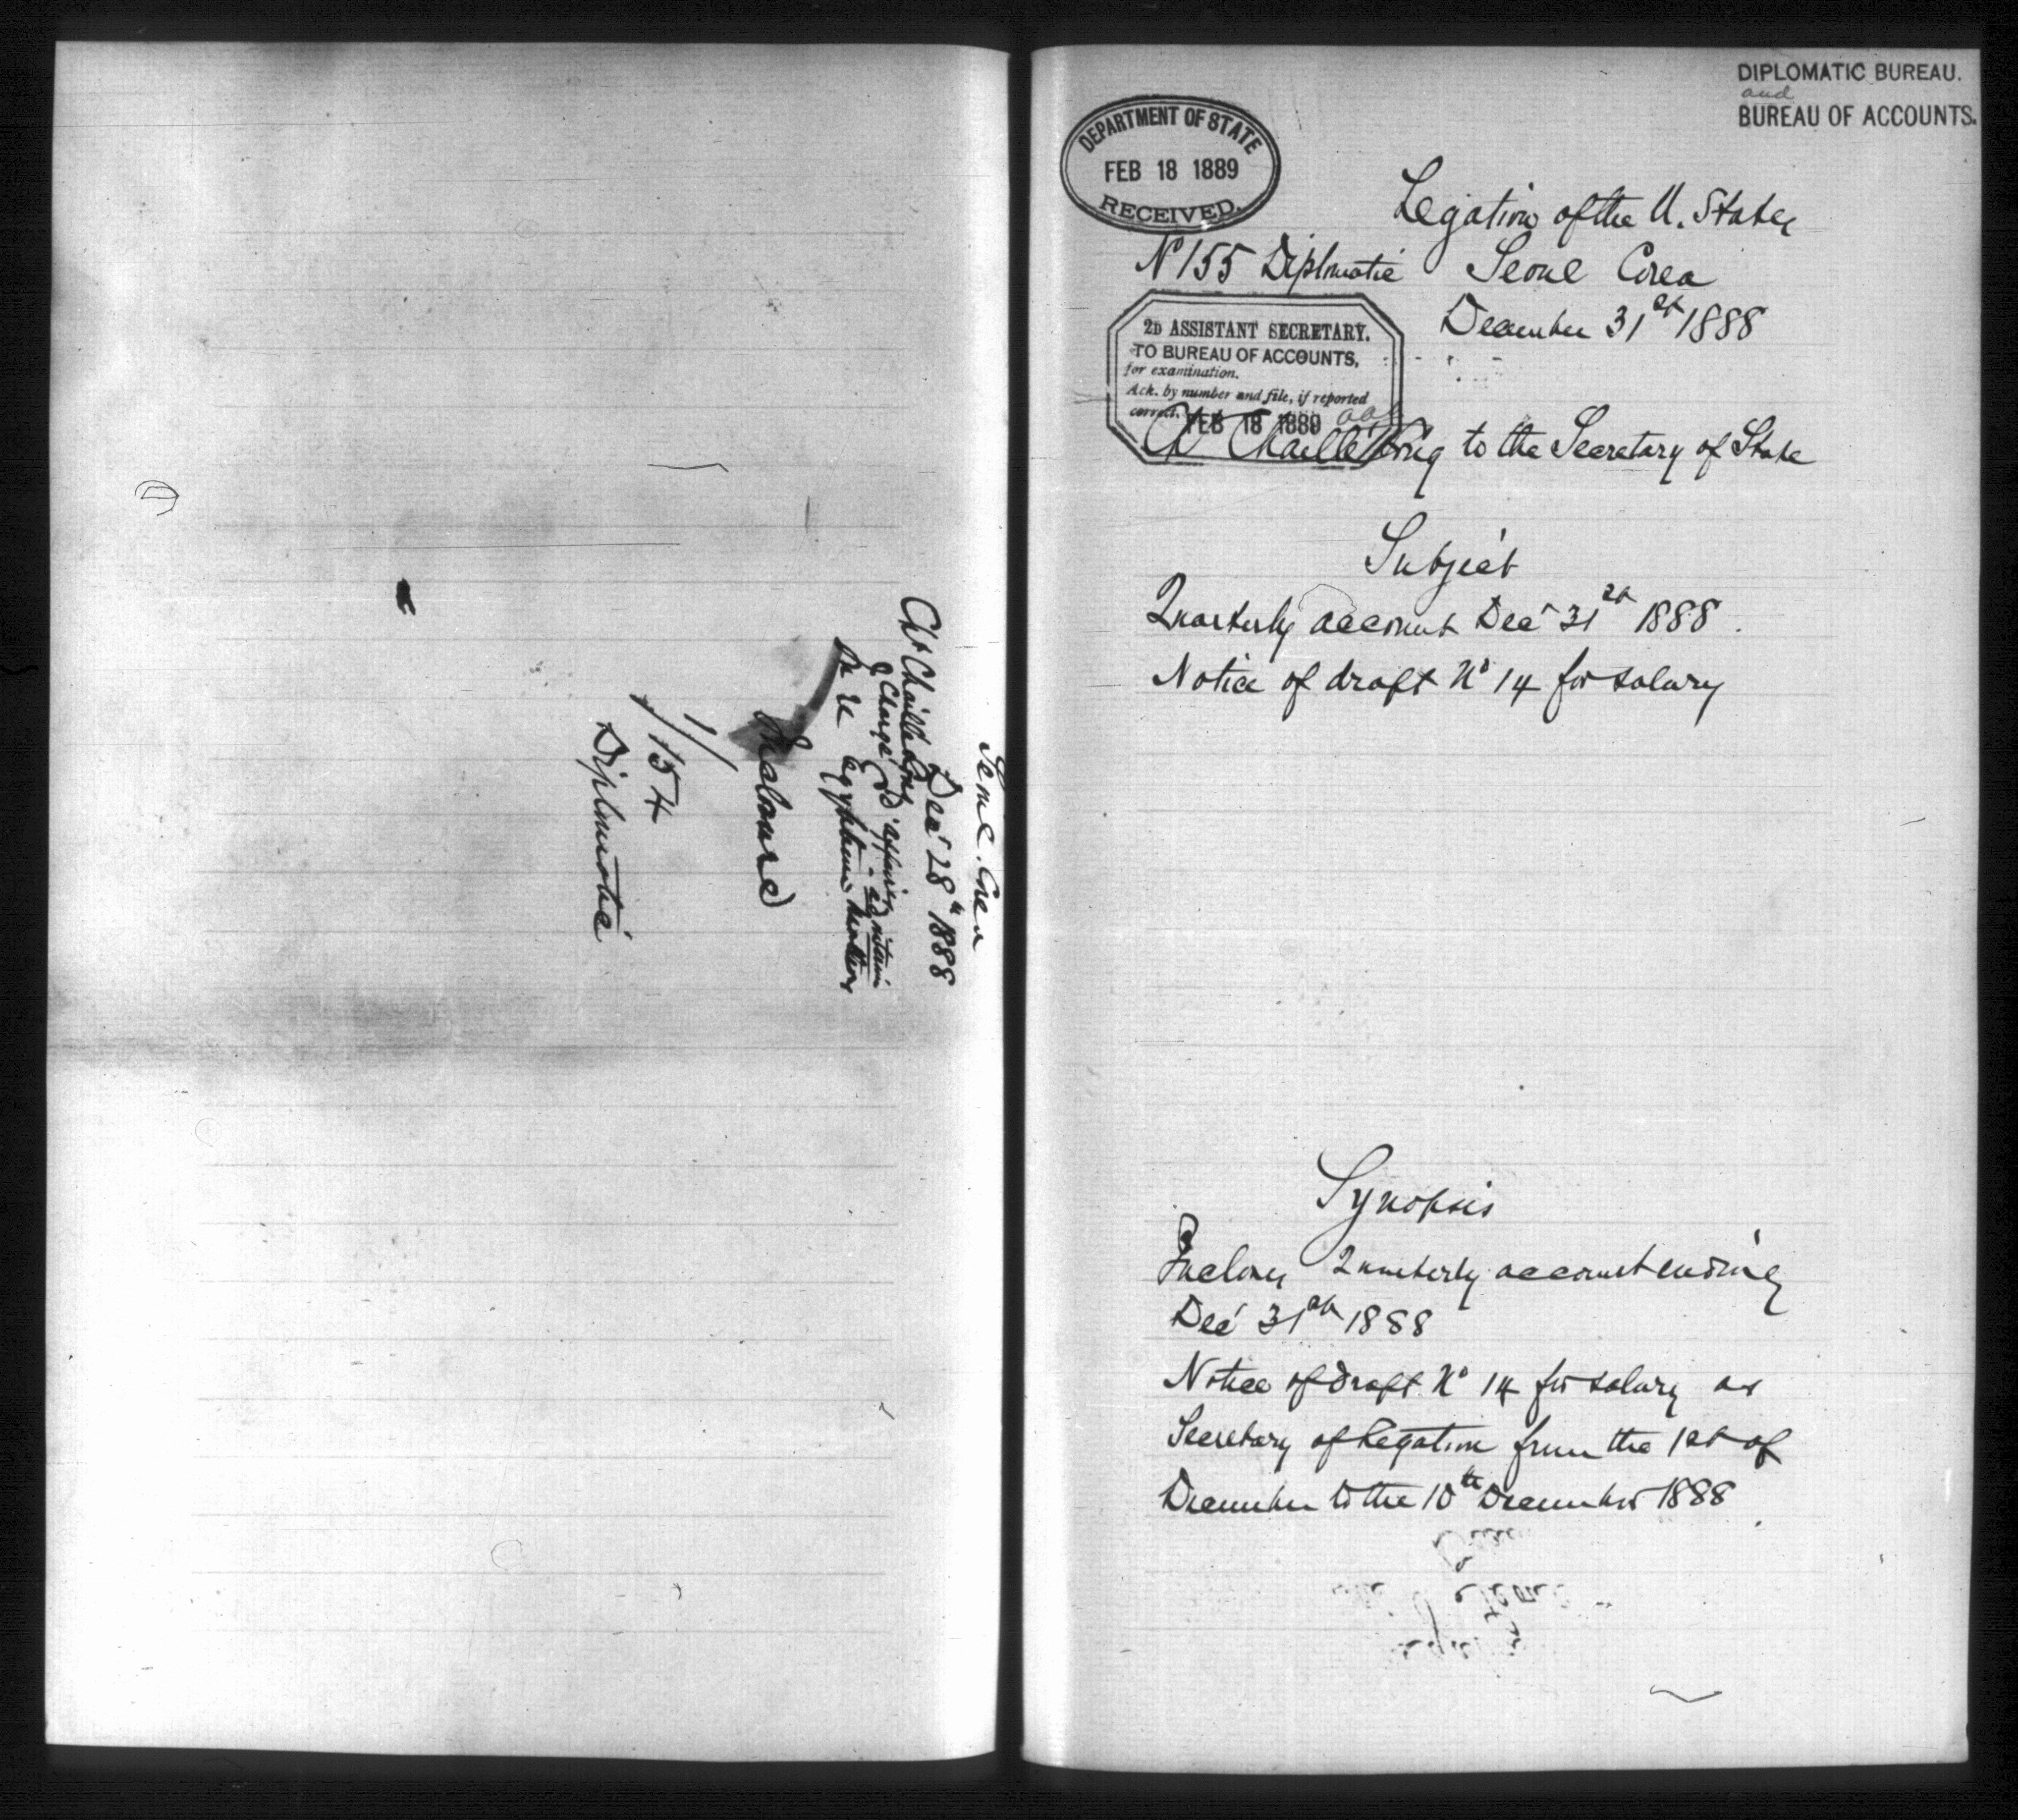 Seoul. Corea
Dec' 28th 1888
Ch Chaillé Long
Chargé d'affaires ad interim
In re Egyptian matters
1/
154
Diplomatic
DIPLOMATIC BUREAU.
and
BUREAU OF ACCOUNTS.
DEPARTMENT OF STATE
FEB 18 1889
RECEIVED.
Legation of the U. States
No 155 Diplomatic Seoul Corea
December 31st 1888
2D ASSISTANT SECRETARY.
TO BUREAU OF ACCOUNTS,
for examination.
Ack. by number and file, if reported
correct. FEB 18 1889
Ch Chaillé Long to the Secretary of State
Subject
Quarterly account Dec' 31st 1888.
Notice of draft No 14 for salary
Synopsis
Incloses Quarterly account ending
Dec' 31st 1888
Notice of draft No 14 for salary as
Secretary of Legation from the 1st of
December to the 10th December 1888.